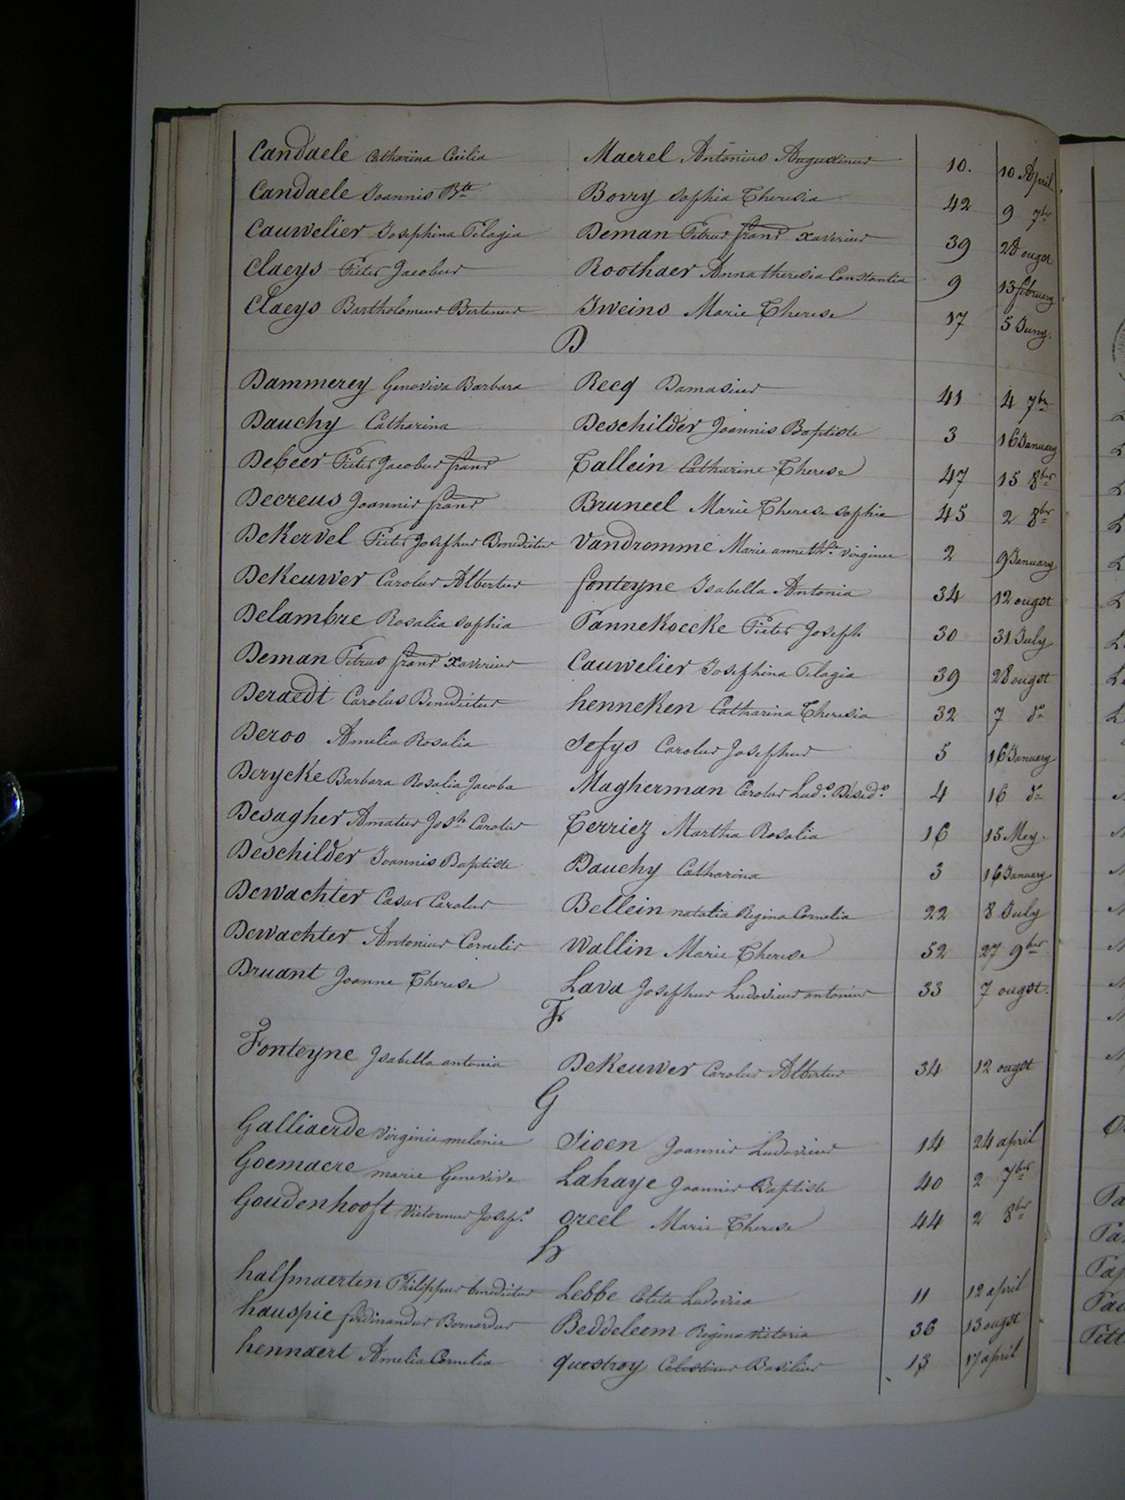 Candaele Catharina Cecilia Maerel Antonius Augustinus 10. 10 April
Candaele Joannis Bte Bovry Sophia Theresia 42 9 7br
Cauwelier Josephina Pelagia Deman Petrus frans xaverius 39 28 ougst
Claeys Pieter Jacobus Roothaer Anna theresia Constantia 9 13 february
Claeys Bartholomeus Bertinus Iweins Marie Therese 17 5 Juny.
D
Dammerey Genoviva Barbara Recq Damasius 41 4 7br
Dauchy Catharina Deschilder Joannis Baptiste 3 16 January
Debeer Pieter Jacobus frans Tallein Catharine Therese 47 15 8br
Decreus Joannis frans Bruneel Marie Therese sophia 45 2 8br
DeKervel Pieter Josephus Benedictus Vandromme Marie anne ths. virginie 2 9 January
DeKeuwer Carolus Albertus fonteyne Isabella Antonia 34 12 ougst
Delambre Rosalia sophia Pannekoecke Pieter Joseph 30 31 July
Deman Petrus frans xaverius Cauwelier Josephina Pelagia 39 28 ougst
Deraedt Carolus Benedictus henneken Catharina Theresia 32 7 do
Deroo Amelia Rosalia Sefys Carolus Josephus 5 16 January
Derycke Barbara Rosalia Jacoba Magherman Carolus Ludo. Desido. 4 16 do
Desagher Amatus Josh Carolus Terriez Martha Rosalia 16 15 Mey.
Deschilder Joannis Baptiste Dauchy Catharina 3 16 January
Dewachter Casar Carolus Bellein natalia Regina Cornelia 22 8 July
Dewachter Antonius Cornelis Wallin Marie Therese 52 27 9ber
Druant Joanne Therese Lava Josephus Ludovicus antonius 33 7 ougst.
F
Fonteyne Isabella antonia DeKeuwer Carolus Albertus 34 12 ougst
G
Galliaerde virginie melanie Sioen Joannis Ludovicus 14 24 april
Goemaere marie Genevive Lahaye Joannis Baptiste 40 2 7br
Goudenhooft Victorinus Josep. oreel Marie Therese 44 2 8br
h
halfmaerten Philippus benedictus Lebbe Coleta Ludovica 11 12 april
hauspie ferdinandus Bernardus Beddeleem Regina Victoria 36 13 ougst
hennaert Amelia Cornelia questroy Celestinus Basilius 13 17 april